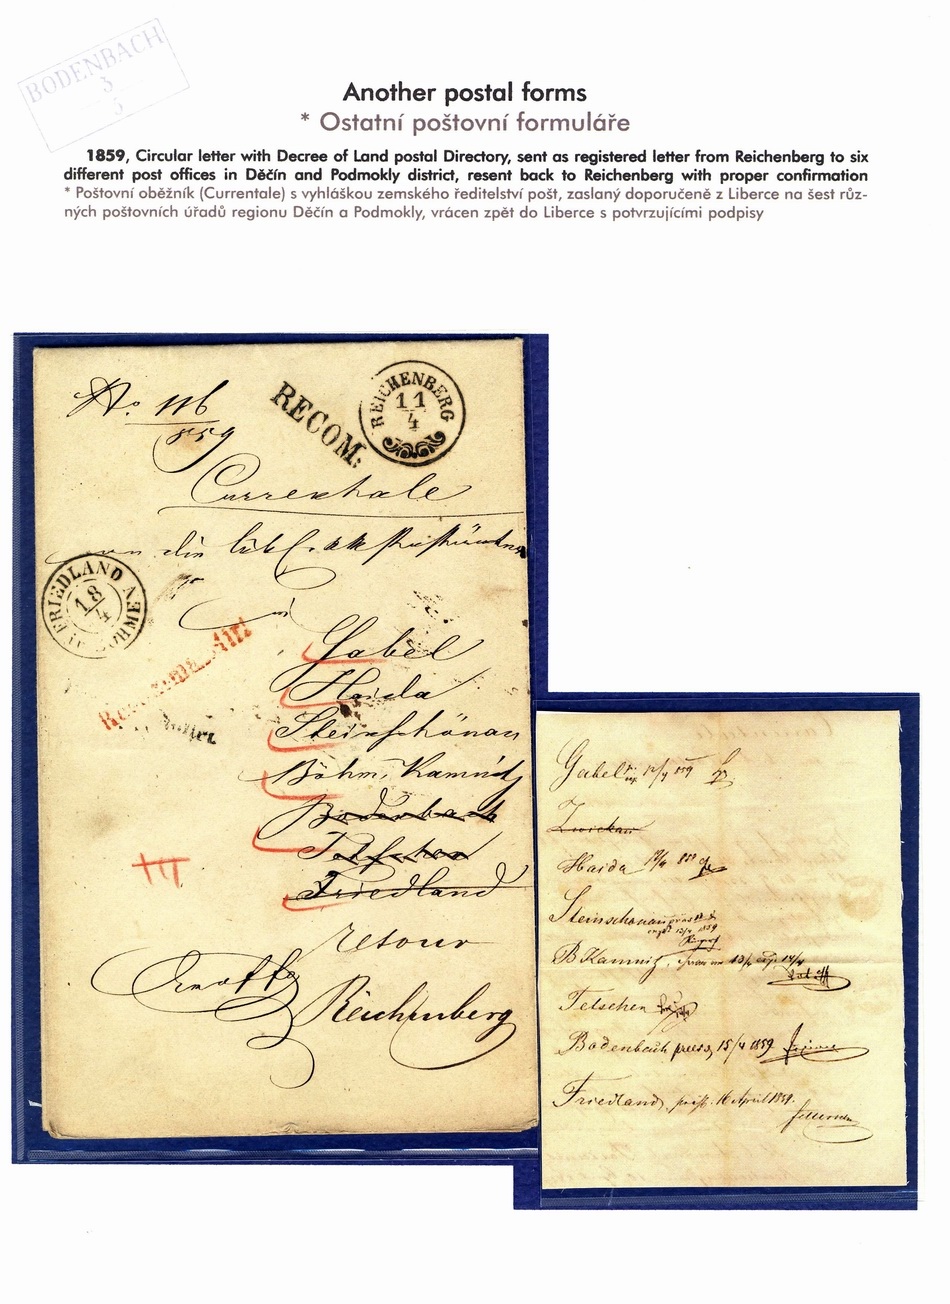 BODENBACH
3
5
Another postal forms
* Ostatní poštovní formuláře
1859, Circular letter with Decree of Land postal Directory, sent as registered letter from Reichenberg to six
different post offices in Děčín and Podmokly district, resent back to Reichenberg with proper confirmation
* Poštovní oběžník (Currentale) s vyhláškou zemského ředitelství pošt, zaslaný doporučeně z Liberce na šest růz-
ných poštovních úřadů regionu Děčín a Podmokly, vrácen zpět do Liberce s potvrzujícími podpisy
No. 116
859
RECOM:
REICHENBERG
11
4
Currentale
an die
FRIEDLAND
18
4
in
Gabel
Haida
Steinschönau
Böhm. Kamnitz
Bodenbach
Tetschen
Friedland
retour
Reichenberg
Gabel 12/4 859
Zwickau
Haida
Steinschönau
B Kamnitz
Tetschen
Bodenbach 15/4 1859
Friedland 16 April 1859.